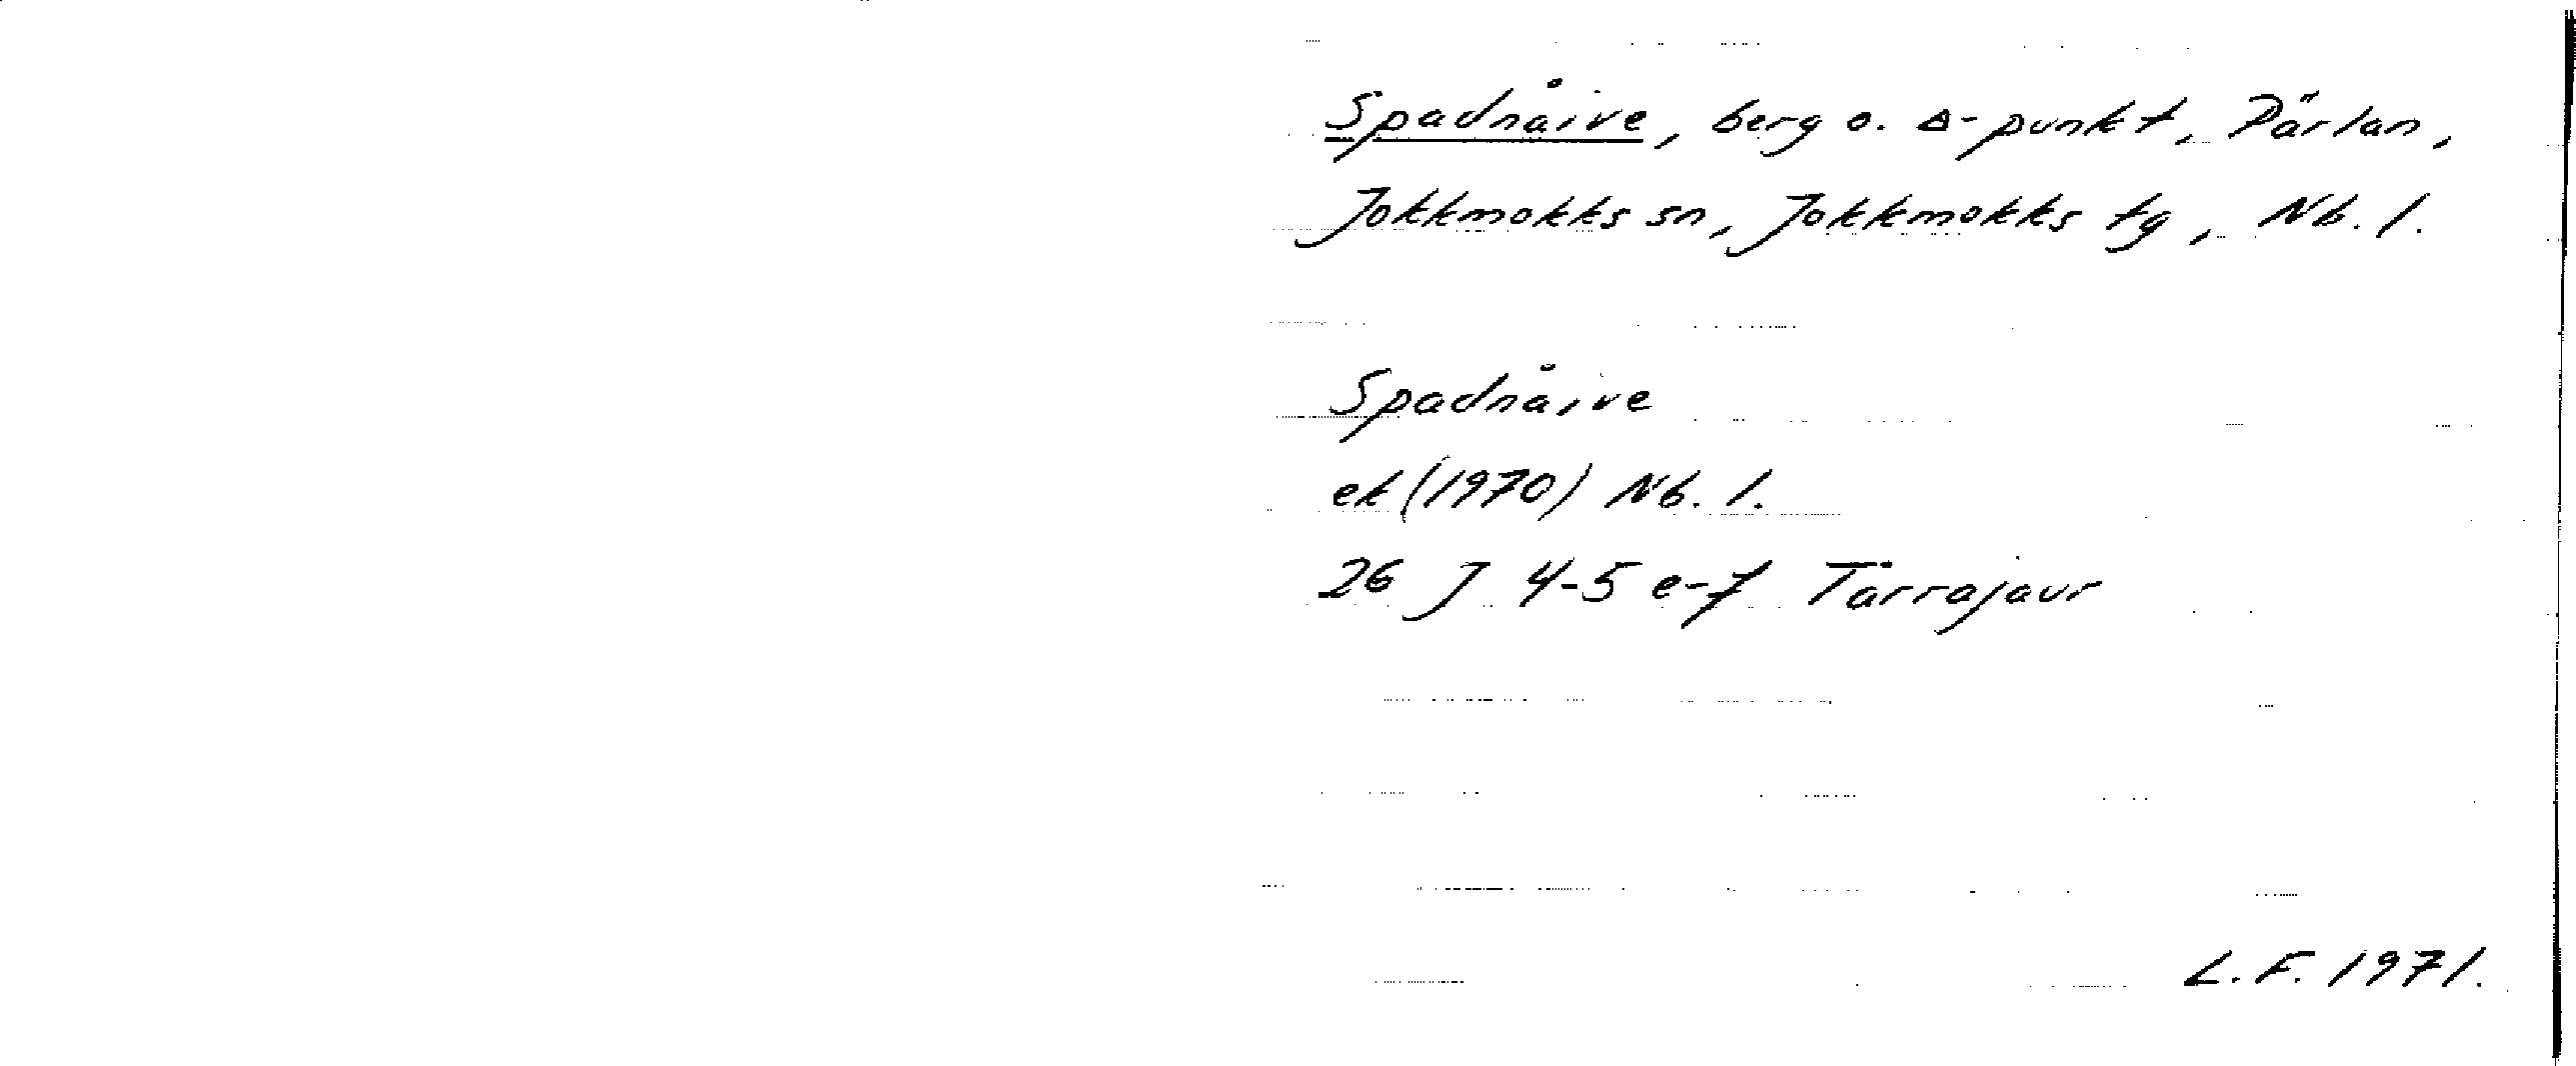 Spadnåive, berg o. ∆-punkt, Pärlan,
Jokkmokks sn, Jokkmokks tg, Nb. l.
Spadnåive
ek (1970) Nb. l.
26 J 4-5 e-f Tårrajaur
L.F. 1971.